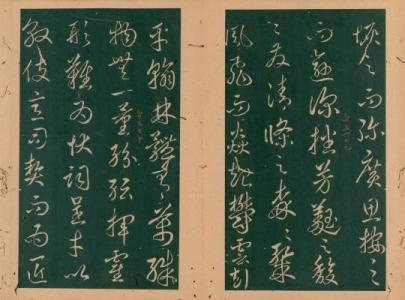 恢之而彌廣思按之
而愈深播芳蕤之馥
〻發清條之森〻粲
風飛而猋豎鬱雲起
乎翰林體有萬殊
物無一量紛紜揮霍
形難為狀詞呈才以
效伎意司契而為匠